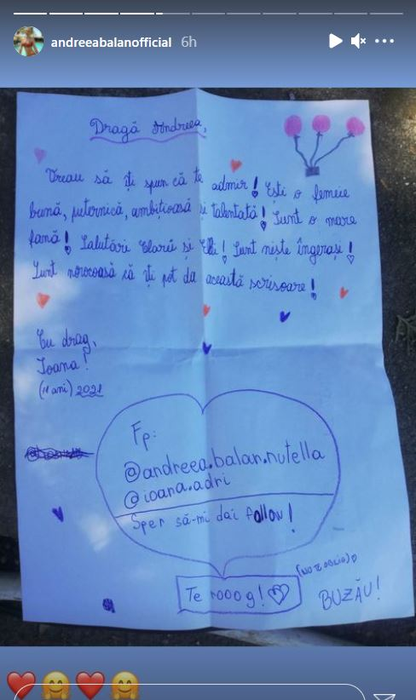 andreeabalanofficial 6h
Dragă Andreea,
Vreau să îți spun că te admir! Ești o femeie
bună, puternică, ambițioasă și talentată! Sunt o mare
fană! Salutări Clarei și Elei! Sunt niște îngerași!
Sunt norocoasă că îți pot da această scrisoare!
Cu drag,
Ioana!
(11 ani) 2021
Fp:
@andreea.balan.nutella
@ioana.adri
Sper să-mi dai follow!
Te rooog!
BUZĂU!